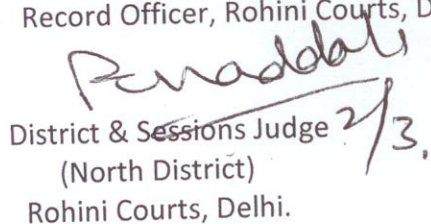 Record Officer, Rohini Courts, D
District & Sessions Judge 2/3.
(North District)
Rohini Courts, Delhi.